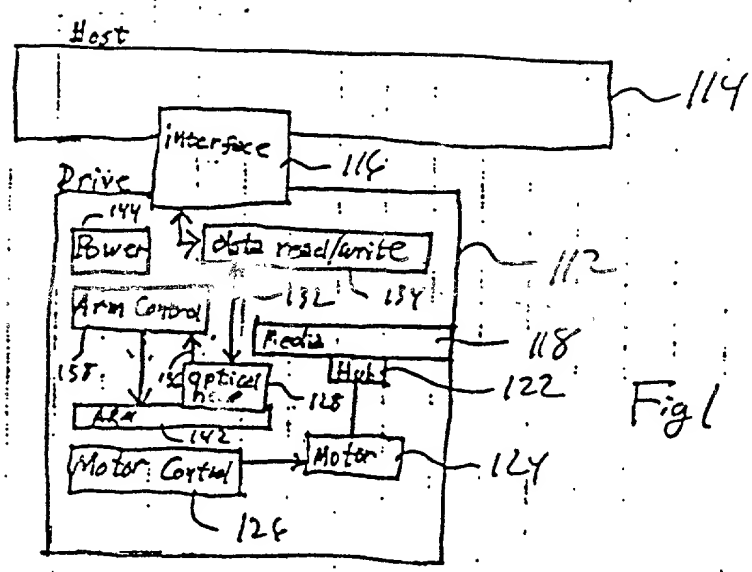 Host
114
interface
116
Drive
144
Power
data read/write
112
132
134
Arm Control
Media
118
138
optical
128
Hub
122
Fig 1
ARM
142
Motor Control
Motor
124
126